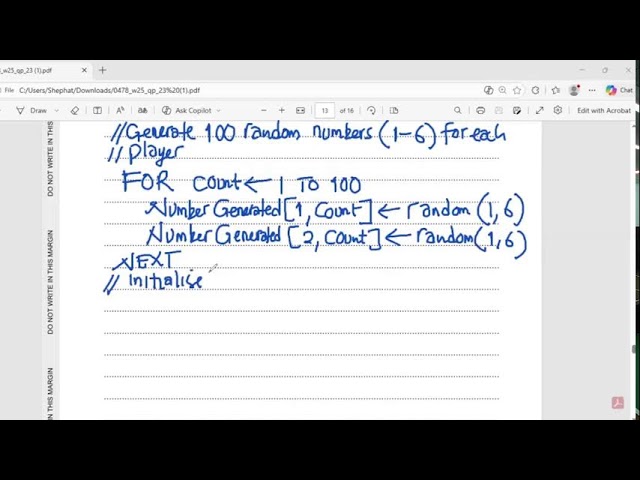 _w25_qp_23 (1).pdf
C:/Users/Shephat/Downloads/0478_w25_qp_23%20(1).pdf
Chat
Draw
Ask Copilot
13 of 16
Edit with Acrobat
//Generate 100 random numbers (1-6) for each
// Player
FOR count ← 1 TO 100
NumberGenerated[1, count] ← random (1,6)
NumberGenerated[2, count] ← random(1,6)
NEXT
// initialise
DO NOT WRITE IN THIS
DO NOT WRITE IN THIS MARGIN
IN THIS MARGIN